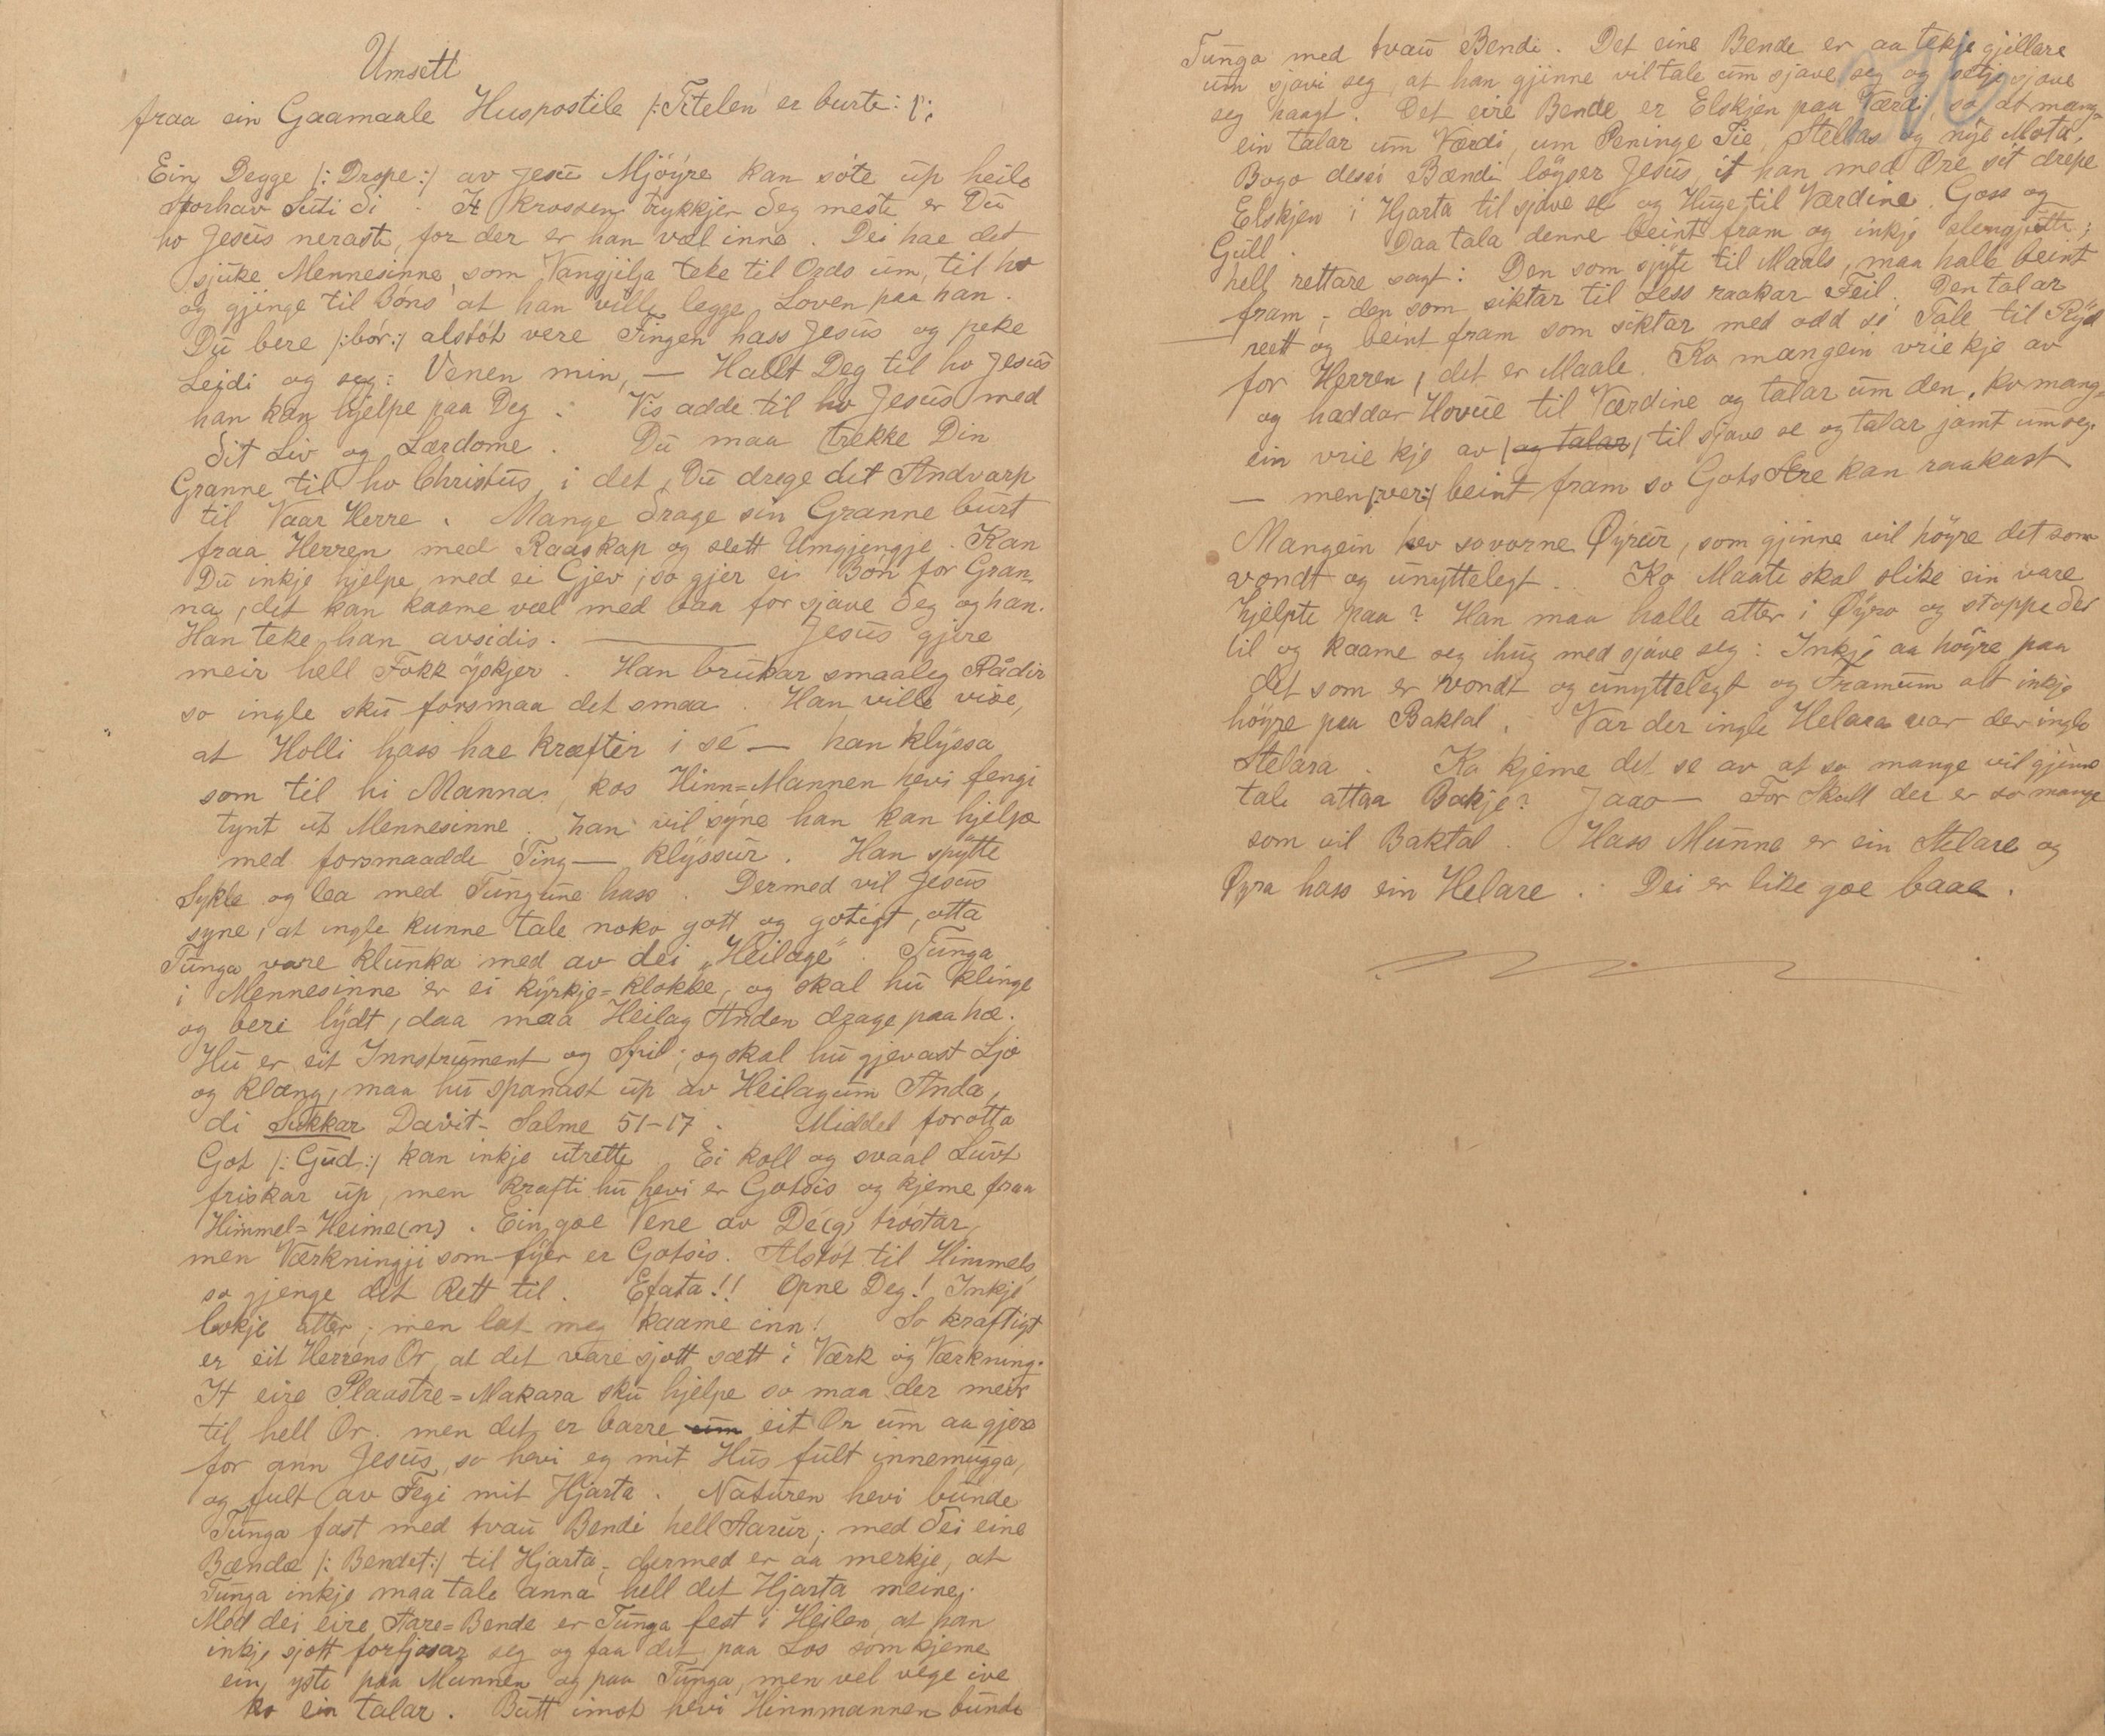 Umsett
fraa ein Gaamaale Huspostile /: Titelen er burte :/:
Ein Degge /: Drope :/ av Jesu Mjöyre kan söte up heile
Storhav Suti di . It krossen trykkjer deg meste er Du
ho Jesus nerast, for der er han væl inne . Dei hae det
sjuke Mennesinne som Vangjilja teke til Ords um, til ho
og gjenge til Bóns at han ville legge Loven paa han .
Du bere /: bór :/ alstót vere Fingen hass Jesus og peke
Leidi og seg : Venen min, — Hallt Deg til ho Jesus
han kan hjelpe paa Deg : Vis adde til ho Jesus med
dit Liv og Lærdome . Du maa trekke Din
Granne til ho Christus, i det, Du drege det Andvarp
til Vaar Herre . Mange drage sin Granne burt
fraa Herren med Raaskap og slett Umgjengje . Kan
Du inkje hjelpe med ei Gjev, so gjer ei Bón for Gran-
na, det kan kaame væl med baa for sjave deg og han.
Han teke han avsidis. — Jesus gjere
meir hell Fokk yskjer . Han brukar smaaleg Rådir
so ingle sku forsmaa det smaa . Han ville vise,
at Holli hass hae kræftir i sé — han klyssa
som til hi Manna, kos Hinn-Mannen hevi fengi
tynt ut Mennesinne . han vil syne han kan hjelpe
med forsmaadde Ting — klyssur . Han spytte
Sykle og lea med Tungune hass . Dermed vil Jesus
syne, at ingle kunne tale noko gott og gotigt, otta
Tunga vare klunka med av dei „Heilage" . Tunga
i Mennesinne er ei kyrkje-klokke, og skal hu klinge
og bere lydt, daa maa Heilag Anden drage paa hæ.
Hu er eit Innstrument og Spil ; og skal hu gjevast Ljo
og klang, maa hu spanast up av Heilagum Anda,
di Sukkar Davit- Salme 51-17 . Middel forotta
Got /: Gud :/ kan inkje utrette . Ei koll og svaal Luvt
friskar up, men krafti hu hevi er Gotsis og kjeme fraa
Himmel-Heime(n) . Ein goe Vene av Dé(g) tróstar,
men Værkningji som fyer er Gotsis. Alstót til Himmels
so gjenge det Rett til . Efata !! Opne Deg ! Inkje
lokje atter ; men lat meg kaame inn ! So kraftigt
er eit Herrens Or, at det vare sjott sætt i Værk og Værkning.
It eire Plaastre-Makara sku hjelpe so maa der meir
til hell Or. men det er barre um eit Or um aa gjera
for ann Jesus, so hevi eg mit Hus fult innemugga,
og fult av Fegi mit Hjarta . Naturen hevi bunde
Tunga fast med tvau Bendi hell Aarur ; med dei eine
Bændæ /: Bendet :/ til Hjarta ; dermed er aa merkje, at
Tunga inkje maa tale anna hell det Hjarta meine.
Med dei eire Aare-Bende er Tunga fest i Heilen, at han
inkje sjott forfjasar seg og faa det paa Los som kjeme
ein yste paa Munnen og paa Tunga, men vel vege ive
ko ein talar . Butt imot hevi Hinnmannen bunde
Tunga med tvau Bendi . Det eine Bende er aa tekje gjillare
um sjavi seg, at han gjinne vil tale um sjave seg og setje sjave
seg haagt . Det eire Bende er Elskjen paa Værdi, so at mang-
ein talar um Værdi, um Peninge Tie, Stellas og nye Mota,
Bogo desei Bændi löyser Jesus, it han med Ore sit drepe
Elskjen i Hjarta til sjave se og Huge til Værdine Goss og
Gull . Daa tala denne beint fram og inkje slengjutte ;
hell rettare sagt : Den som sjyte til Maals, maa halle beint
fram ; den som siktar til Less raakar Feil . Den talar
reett og beint fram som siktar med add si Tale til Ryd
for Herren, det er Maale . Ko mangein vrie kje av
og haddar Hovue til Værdine og talar um den, ko mang-
ein vrie kje av (og talar) til sjave se og talar jamt um seg.
— men /: ver :/ beint fram so Gots Ære kan raakast
Mangein hev sovorne Öyrur, som gjinne vil höyre det som
vondt og unyttelegt . Ko Maate skal slike ein vare
hjelpte paa ? Han maa halle atter i Öyro og stoppe der
til og kaame seg ihug med sjave seg : Inkje aa höyre paa
det som er vondt og unyttelegt og Framum alt inkje
höyre paa Baktal . Var der ingle Helara var der ingle
Stelara . Ko kjeme det se av at so mange vil gjinne
tale attaa Bakje ? Jaao — For Skull der er so mange
som vil Baktal . Hass Munne er ein Stelare og
Öyra hass ein Helare . : Dei er like goe baae .